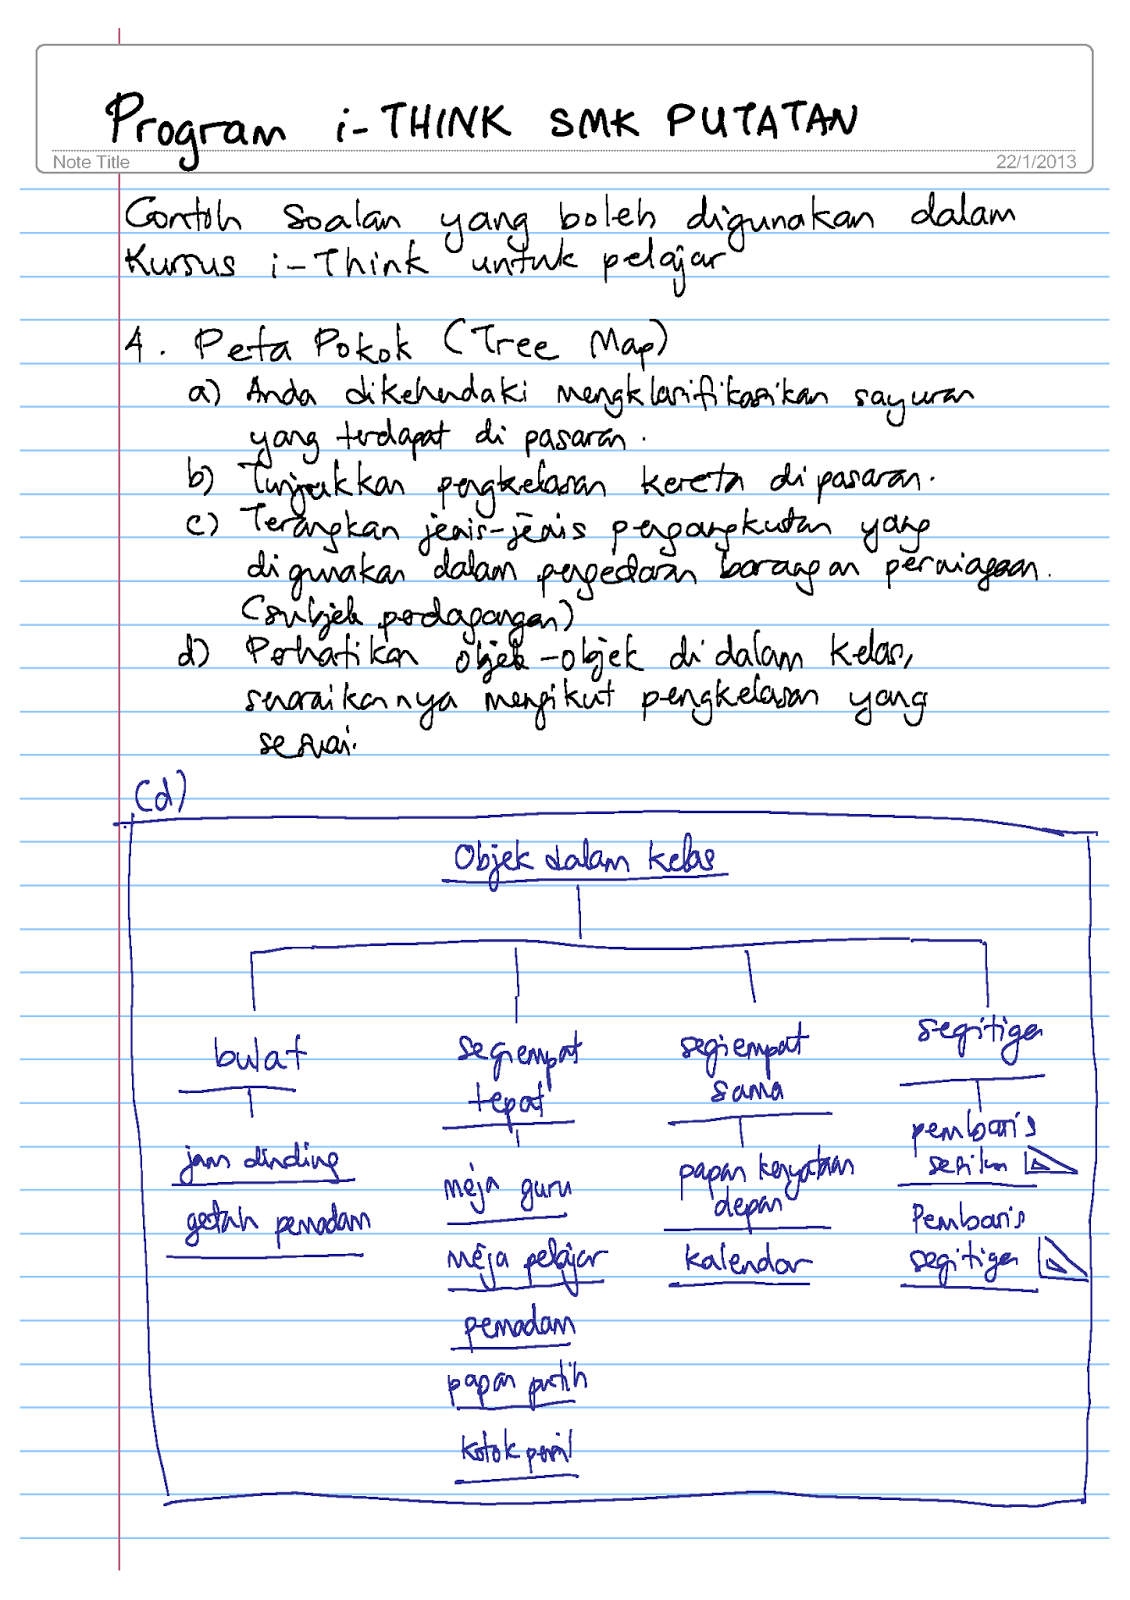 Program i-THINK SMK PUTATAN
Note Title
22/1/2013
Contoh soalan yang boleh digunakan dalam
Kursus i-Think untuk pelajar
4. Peta Pokok (Tree Map)
a) Anda dikehendaki mengklasifikasikan sayuran
yang terdapat di pasaran.
b) Tunjukkan pengkelasan kereta di pasaran.
c) Terangkan jenis-jenis pengangkutan yang
digunakan dalam pengedaran barangan perniagaan.
(subjek perdagangan)
d) Perhatikan objek-objek di dalam kelas,
senaraikannya mengikut pengkelasan yang
sesuai.
(d)
Objek dalam kelas
bulat
segiempat
tepat
segiempat
sama
segitiga
jam dinding
getah pemadam
meja guru
meja pelajar
pemadam
papan putih
kotak pensil
papan kenyataan
depan
kalendar
pembaris
sesiku
Pembaris
segitiga